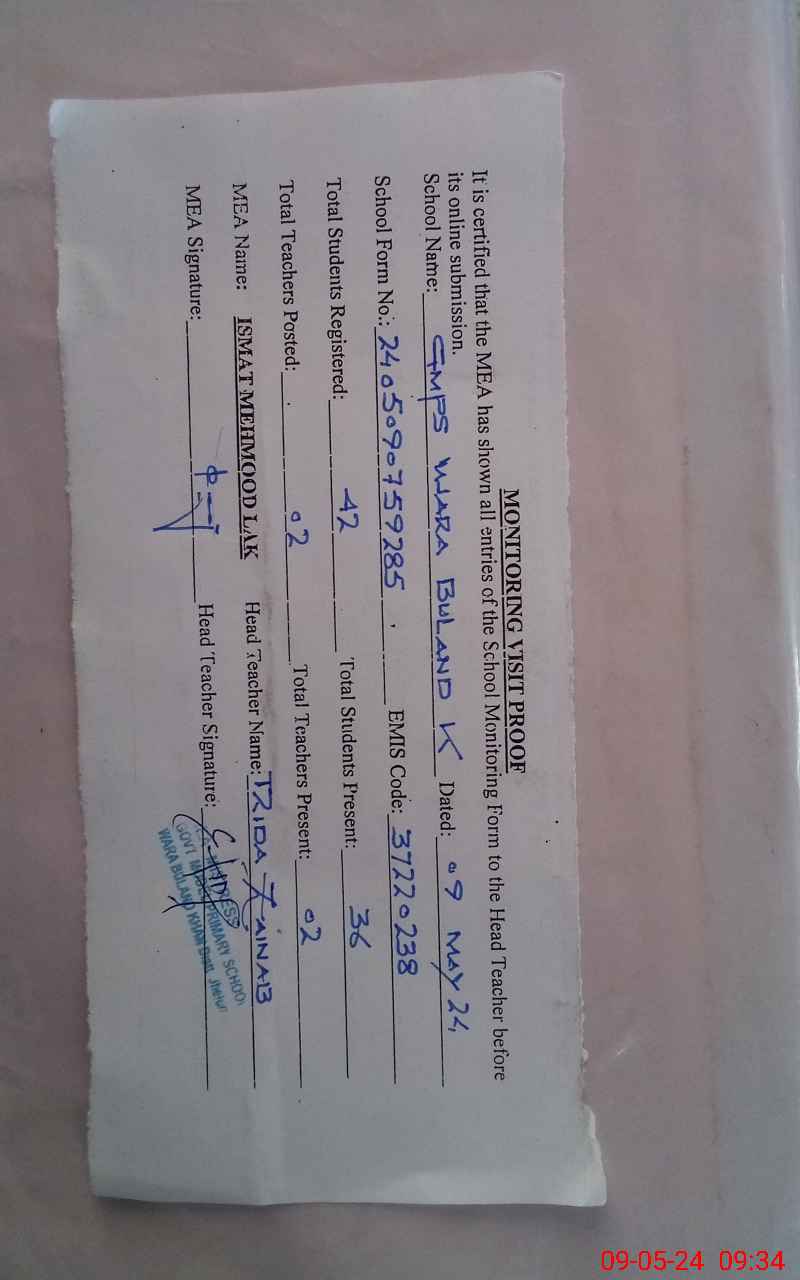 MONITORING VISIT PROOF
It is certified that the MEA has shown all entries of the School Monitoring Form to the Head Teacher before
its online submission.
School Name: GMPS WARA BULAND K Dated: 09 MAY 24
School Form No.: 2405090759285 EMIS Code: 37220238
Total Students Registered: 42 Total Students Present: 36
Total Teachers Posted: 02 Total Teachers Present: 02
MEA Name: ISMAT MEHMOOD LAK Head Teacher Name: ZAINAB
MEA Signature: Head Teacher Signature:
GOVT PRIMARY SCHOOL
WARA BULAND KHAN
09-05-24 09:34